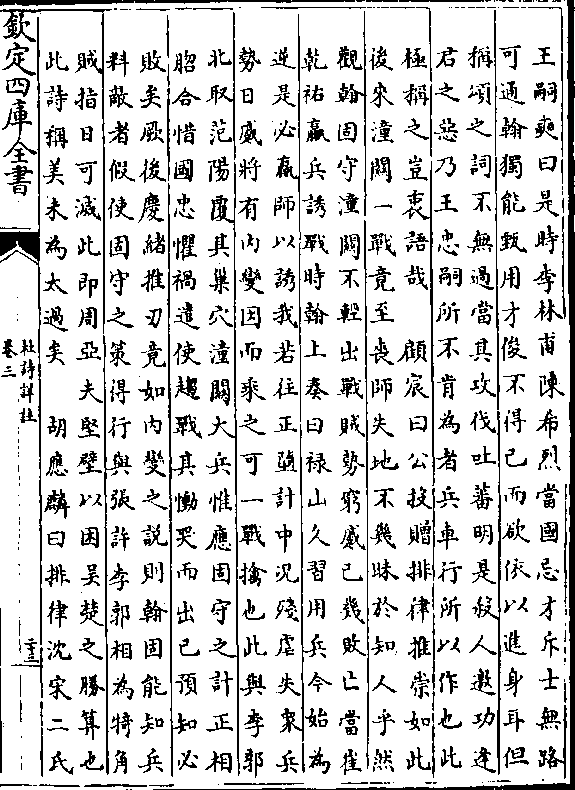 王嗣奭曰是時李林甫陳希烈當國忌才斥士無路
可通翰獨能甄用才俊不得已而欲依以進身耳但
稱頌之詞不無過當其攻伐吐蕃明是殺人邀功逢
君之惡乃王忠嗣所不肯為者兵車行所以作也此
極稱之豈衷語哉　顧宸曰公投贈排律推崇如此
後來潼關一戰竟至喪師失地不幾昧於知人乎然
觀翰固守潼關不輕出戰賊勢窮蹙已幾敗亡當崔
乾祐羸兵誘戰時翰上奏曰祿山久習用兵今始為
逆是必羸師以誘我若往正墮計中況殘虐失衆兵
勢日蹙將有內變因而乘之可一戰擒也此與李郭
北取范陽覆其巢穴潼關大兵惟應固守之計正相
脗合惜國忠懼禍遣使趣戰其慟哭而出已預知必
敗矣厥後慶緒推刃竟如內變之說則翰固能知兵
料敵者假使固守之策得行與張許李郭相為犄角
賊指日可滅此即周亞夫堅壁以困吳楚之勝算也
此詩稱美未為太過矣　胡應麟曰排律沈宋二氏
欽定四庫全書
杜詩詳註
卷三
二十三